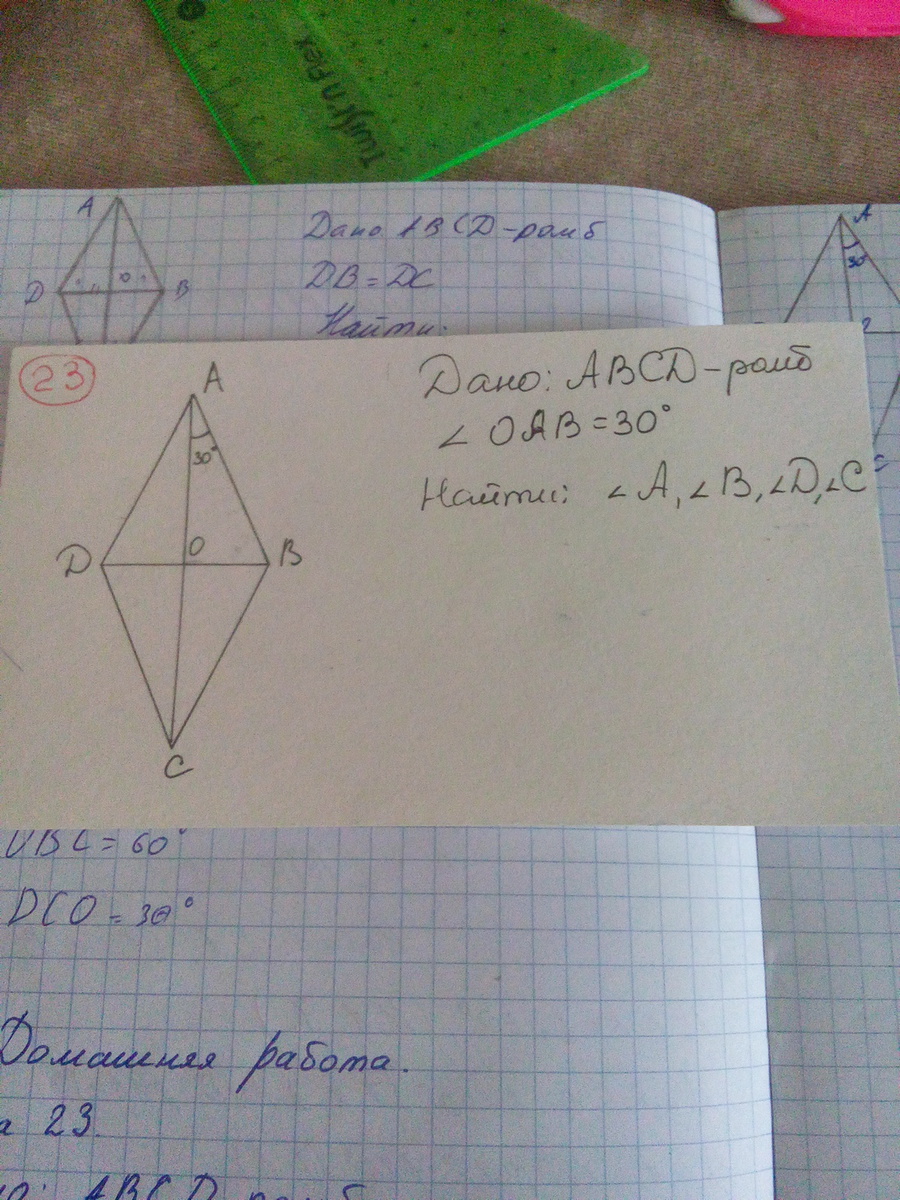 Twist n flex
A
D
O
B
Дано ABCD-ромб
DB=DC
Найти:
A
30°
23
A
30°
D
O
B
C
Дано: ABCD-ромб
∠ OAB=30°
Найти: ∠A,∠B,∠D,∠C
C
OBC=60°
DCO=30°
Домашняя работа.
23.
ABCD ромб